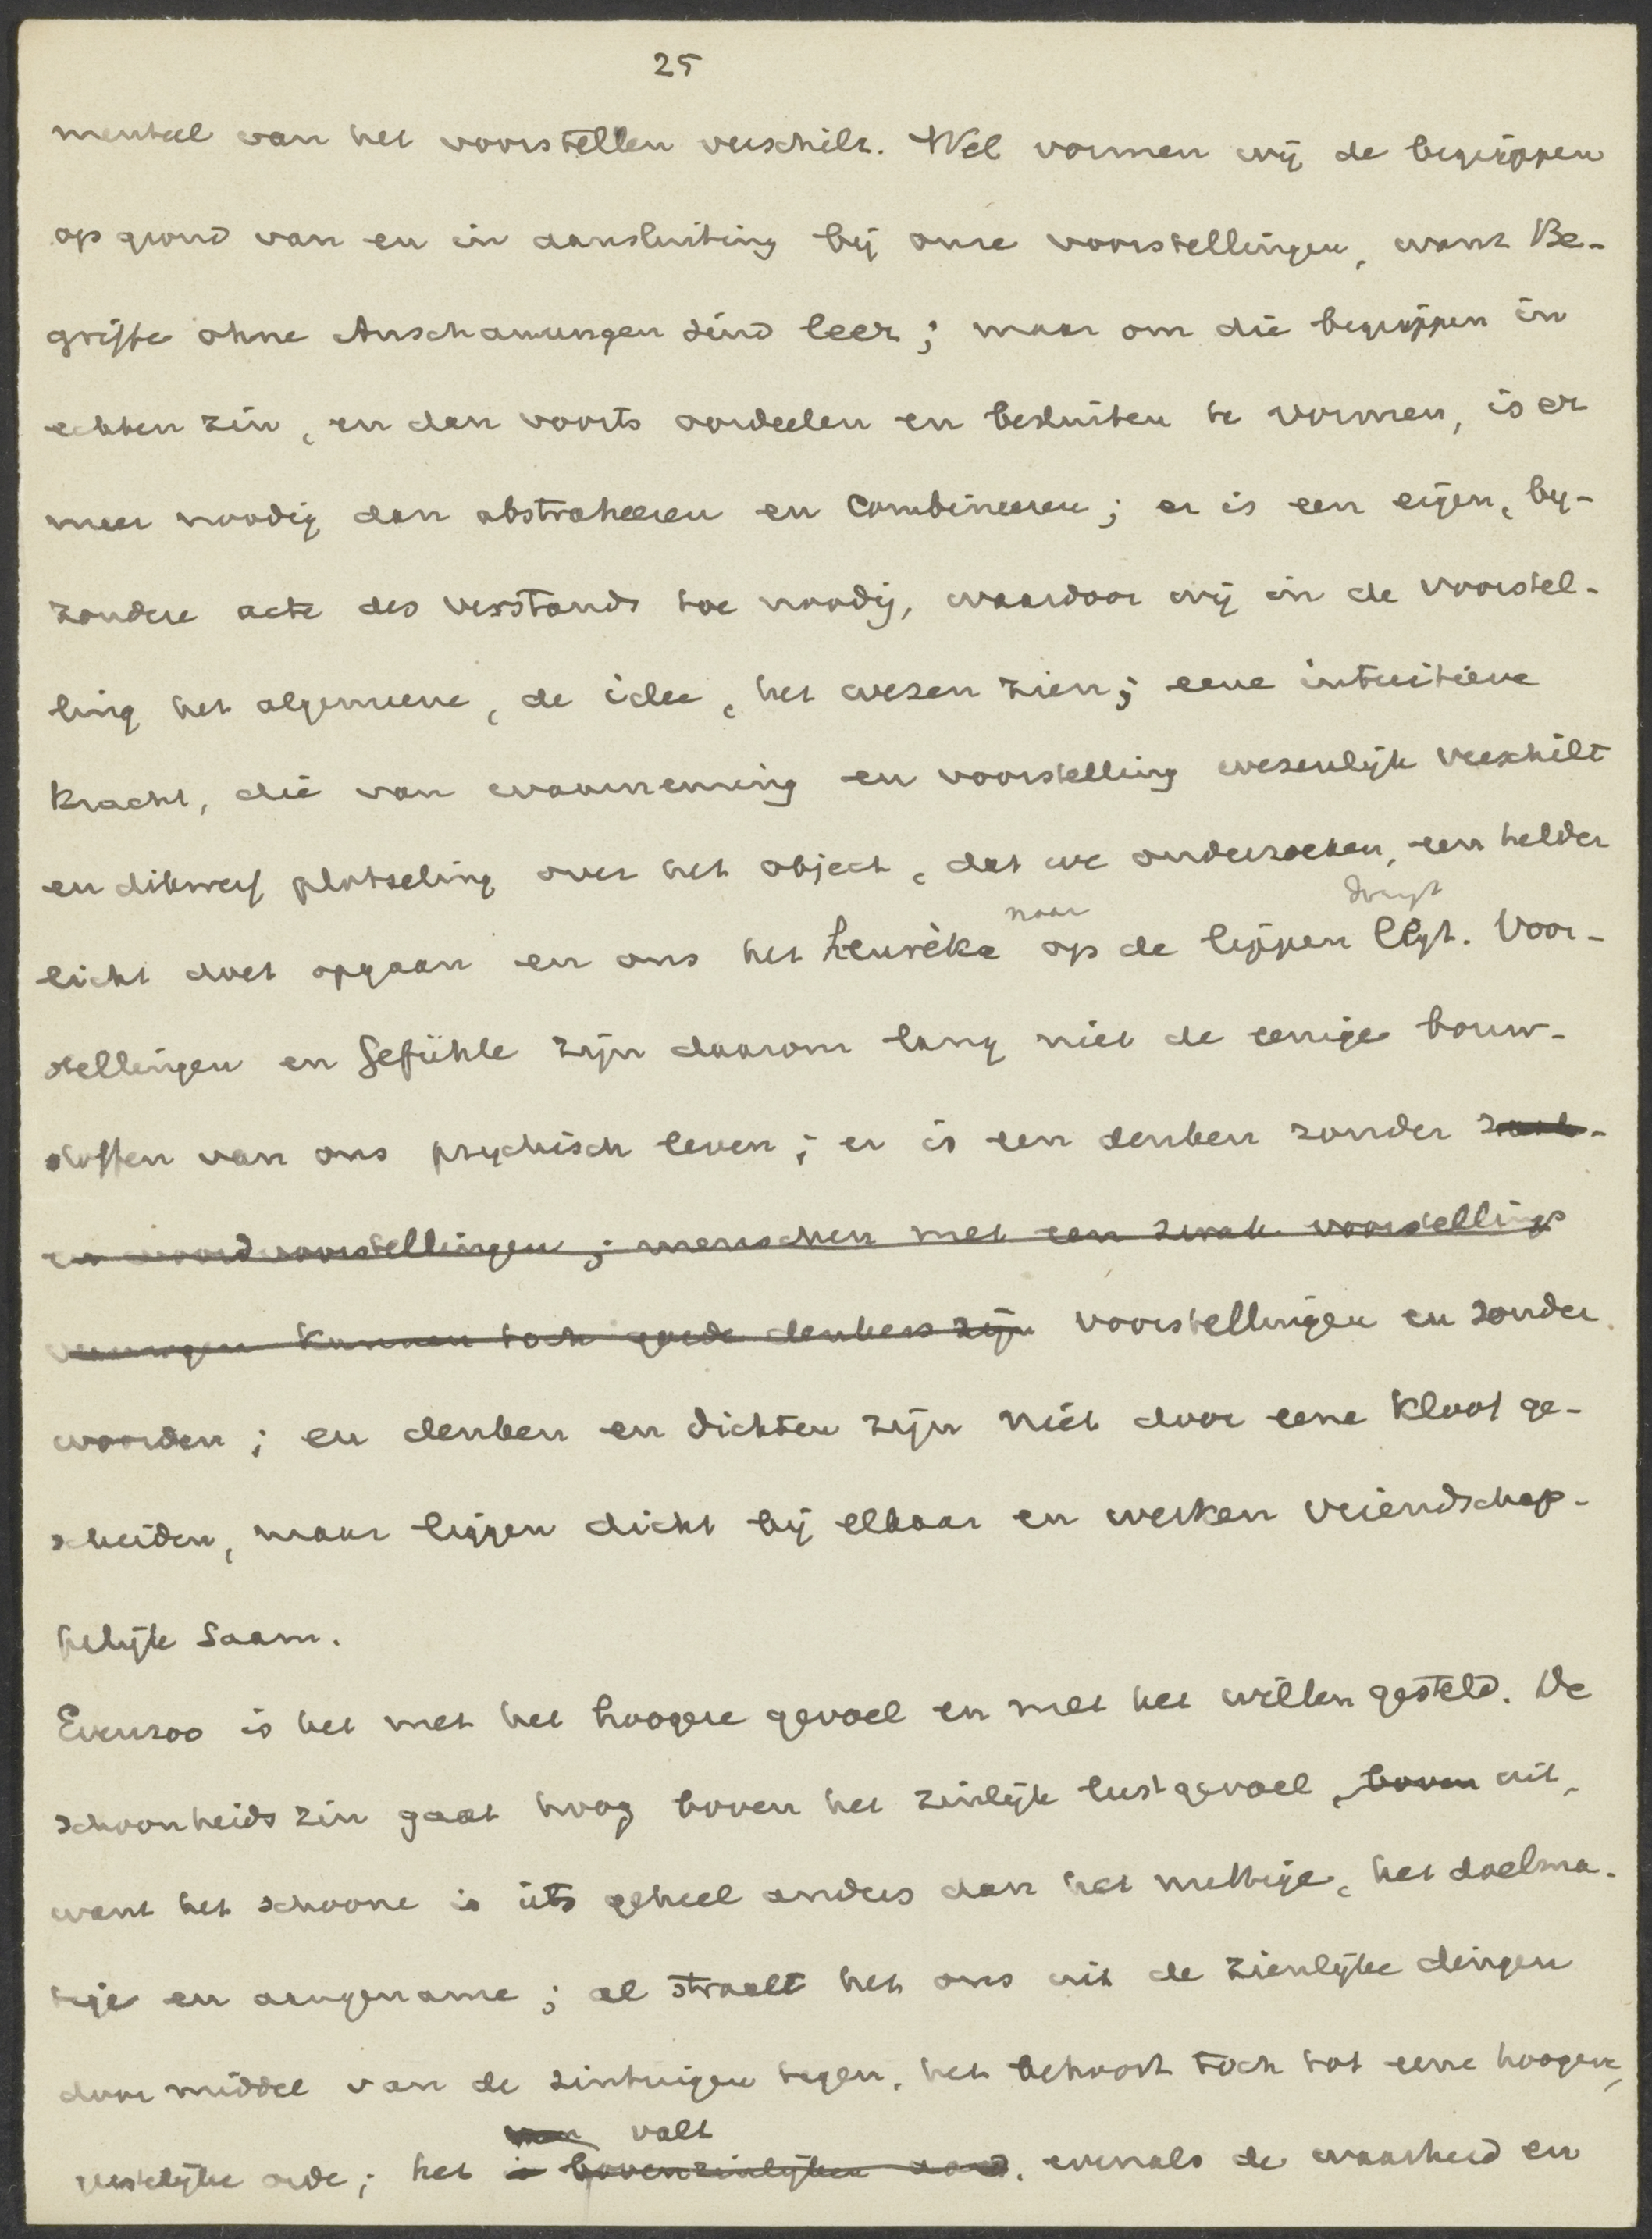 25
menteel van het voorstellen verschilt. Wel vormen wij de begrippen
op grond van en in aansluiting bij onze voorstellingen, want Be-
griffe ohne Anschauungen sind leer; maar om die begrippen in
echten zin, en dan voorts oordeelen en besluiten te vormen, is er
meer noodig dan abstraheeren en combineeren; er is een eigen, by-
zondere acte des verstands toe noodig, waardoor wij in de voorstel-
ling het algemeene, de idee, het wezen zien; eene intuitieve
kracht, die van waarneming en voorstelling wezenlijk verschilt
en dikwerf plotseling over het object, dat we onderzoeken, een helder
naar dringt
licht doet opgaan en ons het heurèka op de lippen legt. Voor-
stellingen en Gefühle zijn daarom lang niet de eenige bouw-
stoffen van ons psychisch leven; er is een denken zonder zaak-
en woordvoorstellingen; menschen met een zwak voorstellings
vermogen kunnen toch goede denkers zijn voorstellingen en zonder
woorden; en denken en dichten zijn niet door eene kloof ge-
scheiden, maar liggen dicht bij elkaar en werken vriendschap-
pelijk saam.
Evenzoo is het met het hoogere gevoel en met het willen gesteld. De
schoonheidszin gaat hoog boven het zinlijk lustgevoel, boven uit,
want het schoone is iets geheel anders dan het nuttige, het doelma-
tige en aangename; al straalt het ons uit de zienlijke dingen
door middel van de zintuigen tegen, het behoort toch tot eene hoogere,
van valt
geestelijke orde; het is bovenzinlijken aard, evenals de waarheid en